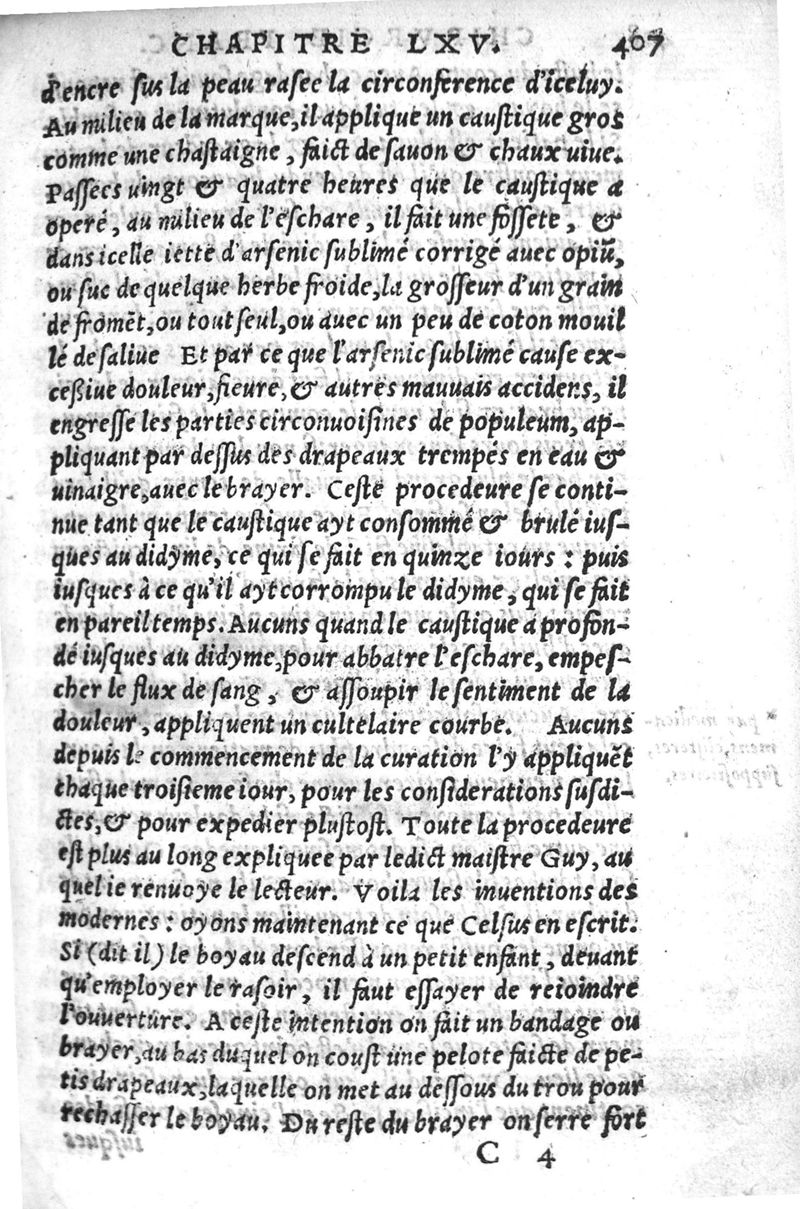 CHAPITRE LXV. 467
d'encre sus la peau rasee la circonference d'iceluy.
Au milieu de la marque, il applique un caustique gros
comme une chastaigne, faict de savon & chaux uiue.
Passees uingt & quatre heures que le caustique a
operé, au milieu de l'eschare, il fait une fossete, &
dans icelle iette d'arsenic sublimé corrigé auec opiũ,
ou suc de quelque herbe froide, la grosseur d'un grain
de fromẽt, ou tout seul, ou auec un peu de coton mouil
lé de saliue Et par ce que l'arsenic sublimé cause ex-
ceßiue douleur, fieure, & autres mauuais accidens, il
engresse les parties circonuoisines de populeum, ap-
pliquant par dessus des drapeaux trempés en eau &
uinaigre, auec le brayer. Ceste procedeure se conti-
nue tant que le caustique ayt consommé & brulé ius-
ques au didyme, ce qui se fait en quinze iours : puis
iusques à ce qu'il ayt corrompu le didyme, qui se fait
en pareil temps. Aucuns quand le caustique a profon-
dé iusques au didyme, pour abbatre l'eschare, empes-
cher le flux de sang, & assoupir le sentiment de la
douleur, appliquent un cultelaire courbe. Aucuns
depuis le commencement de la curation l'y appliquẽt
chaque troisieme iour, pour les considerations susdi-
ctes, & pour expedier plustost. Toute la procedeure
est plus au long expliquee par ledict maistre Guy, au
quel ie renuoye le lecteur. Voila les inuentions des
modernes : oyons maintenant ce que Celsus en escrit.
Si (dit il) le boyau descend à un petit enfant, deuant
qu'employer le rasoir, il faut essayer de reioindre
l'ouuerture. A ceste intention on fait un bandage ou
brayer, au bas duquel on coust une pelote faicte de pe-
tis drapeaux, laquelle on met au dessous du trou pour
rechasser le boyau. Du reste du brayer on serre fort
C 4